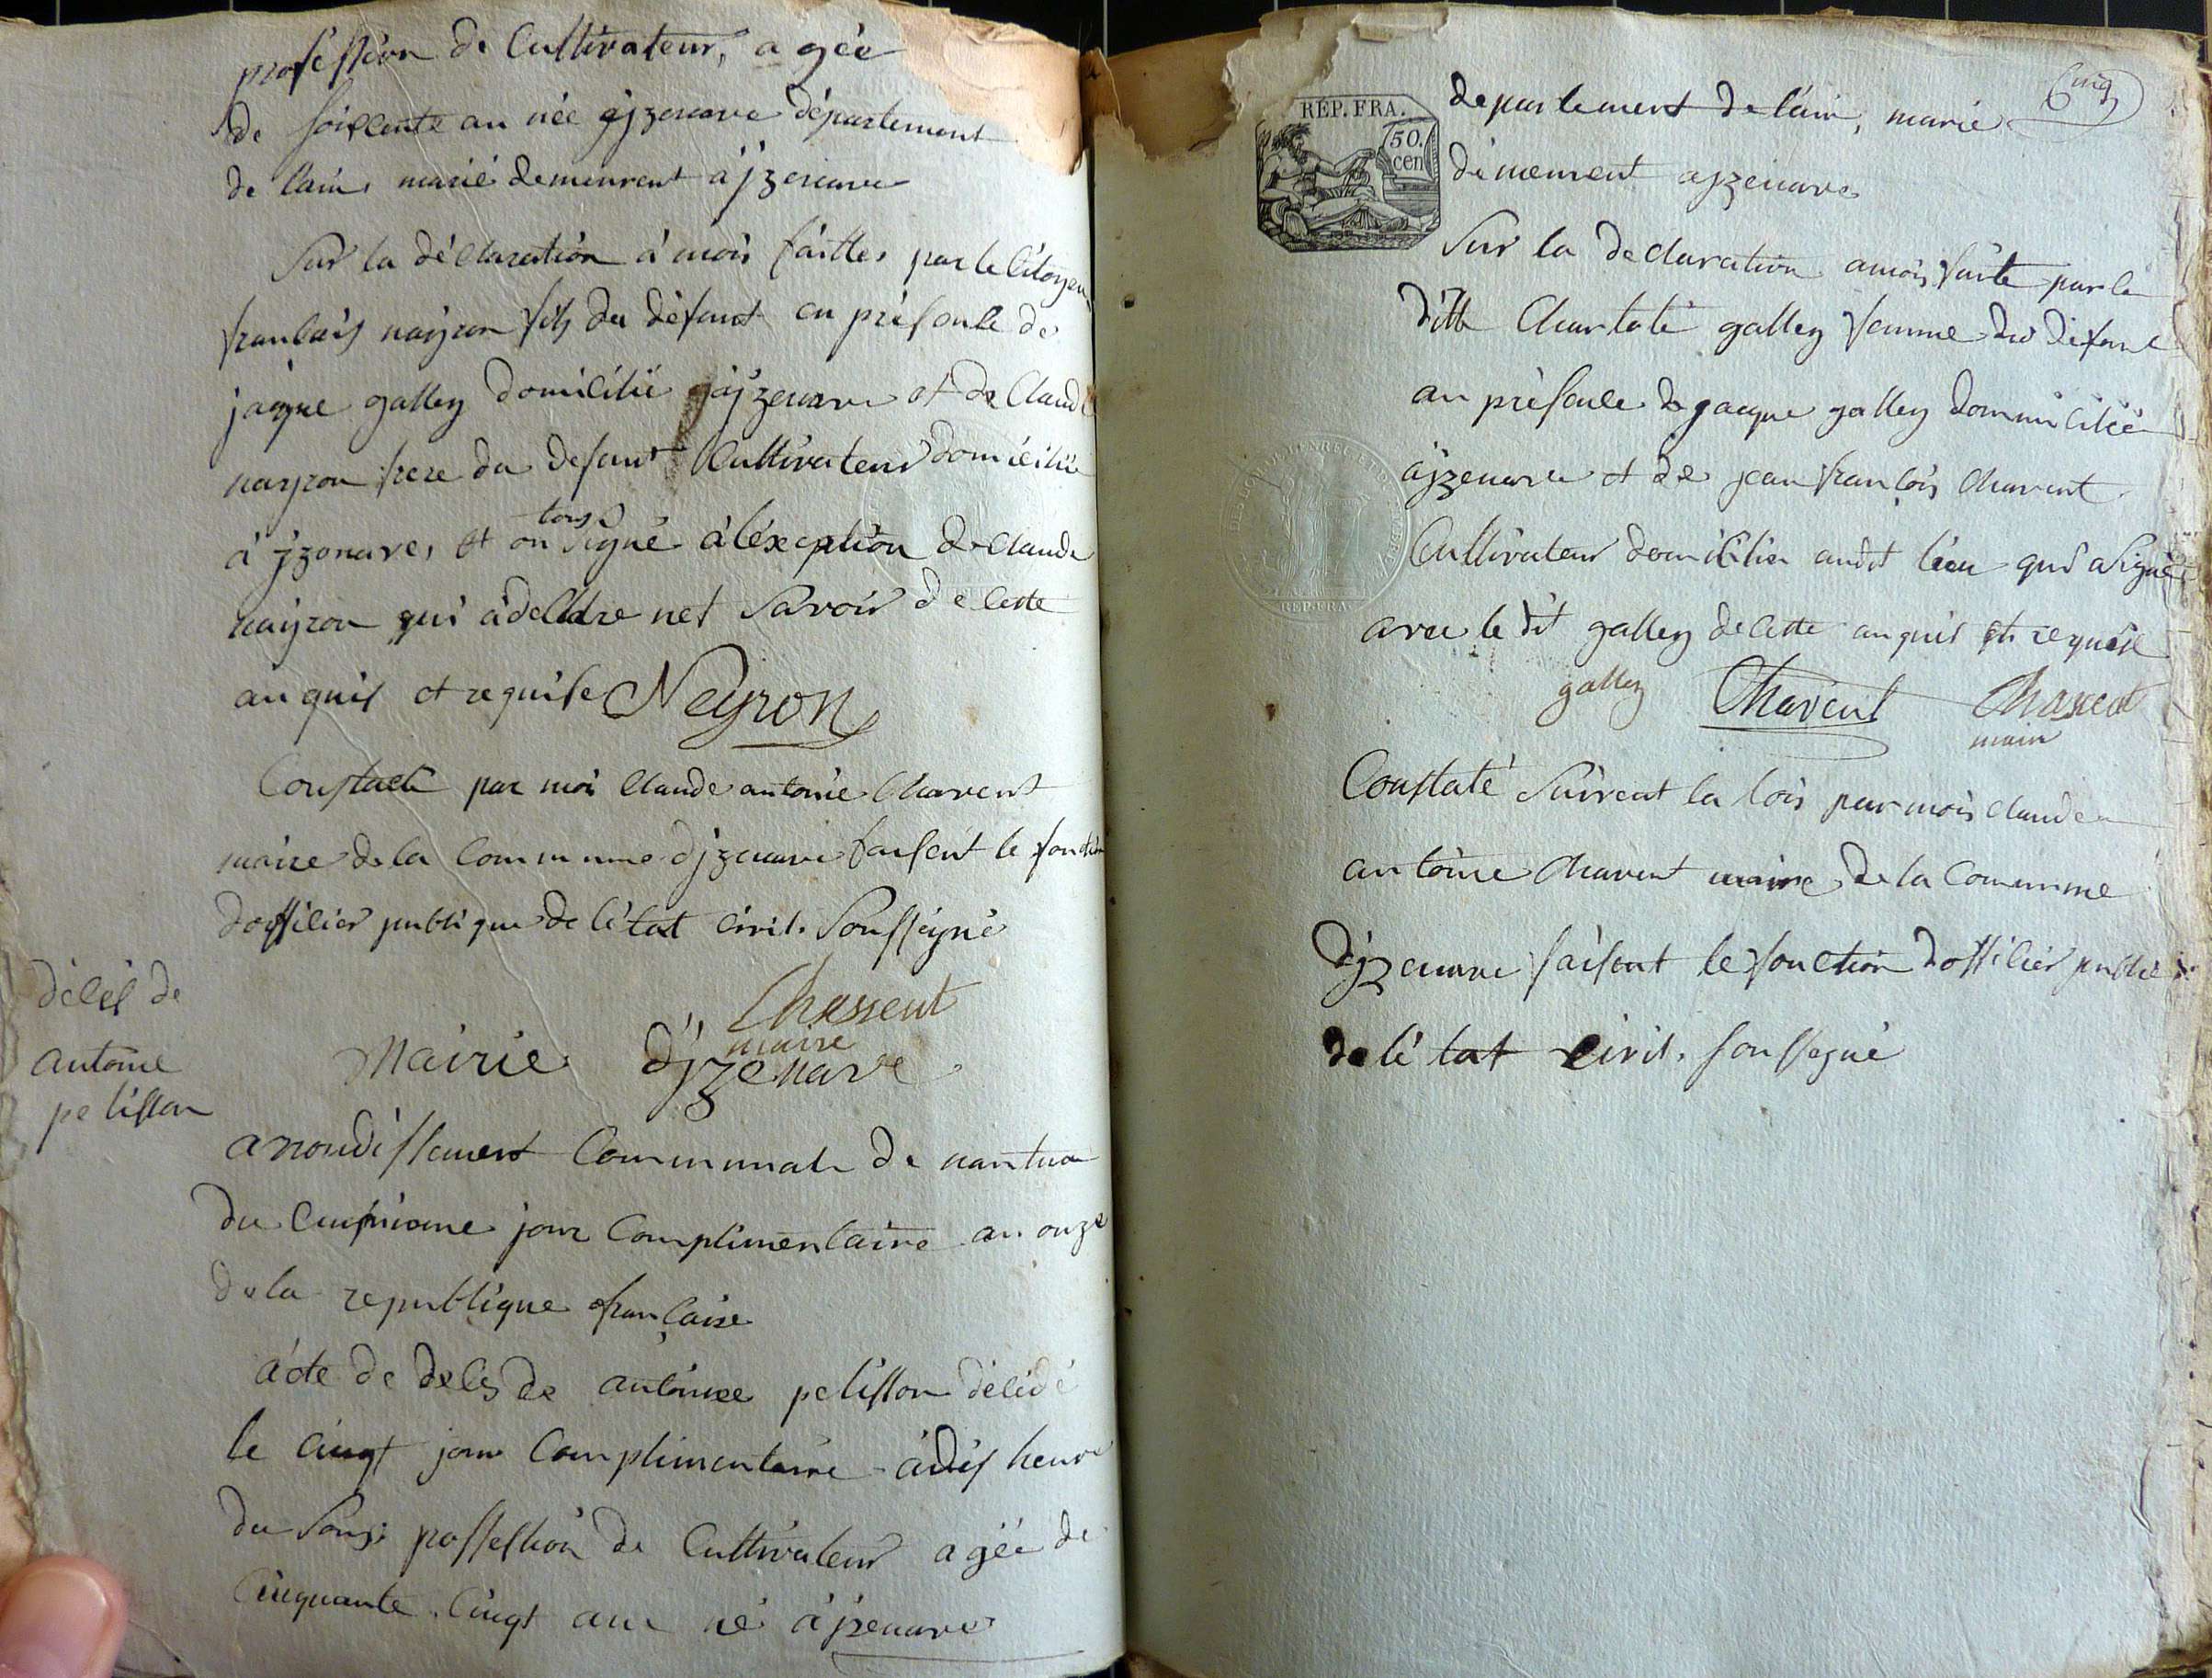 profession de Cultivateur, agée
de soixente an née ajzenave département
de lain, marié demeurent a jzenave
Sur la déclaration à moi faittes par le Citoyen
francais nayron fils du défunt en présence de
jaque galley domicilié ajzenave et de Claude
nayron frere du defunt Cultivateur domicilié
à jzonave, et on tous signé à léxception de claude
nayron qui a declare net savoir de cette
an quis et requise Neyron
Constaté par moi Claude antoine Charvent
maire de la Commune djzenave faisent le fonction
dofficier publique de l'état civil. Soussigné
Charvent
maire
décés de
antoine
pelisson
Mairie d'jzenave
arondissement Communale de nantua
du cinquieme jour Complimentaire an onze
de la republique française
acte de decés de antoine pelisson décédé
le cinqt jour Complimentaire à dis heure
du soir; profession de Cultivateur agée de
Cinquante Cinqt ans né a jzenave
Cinq
REP. FRA.
50.
cen
departement de lain, marié
demeurent ajzenave
Sur la declaration a moi faite par la
ditte Charlote galley femme du défunt
an présence de jacque galley dommicilié
ajzenave et de jean françois Charvent
Cultivateur domicilier audit lieu qui a signé
avec le dit galley de cette anquis et requise
galley Charvent Charvent
maire
Constaté Suivent la lois par mois claude
antoine Charvent maire de la Commune
d'jzenave faisent le fonction dofficier public
de lé tat civil. soussigné
REP. FRA.